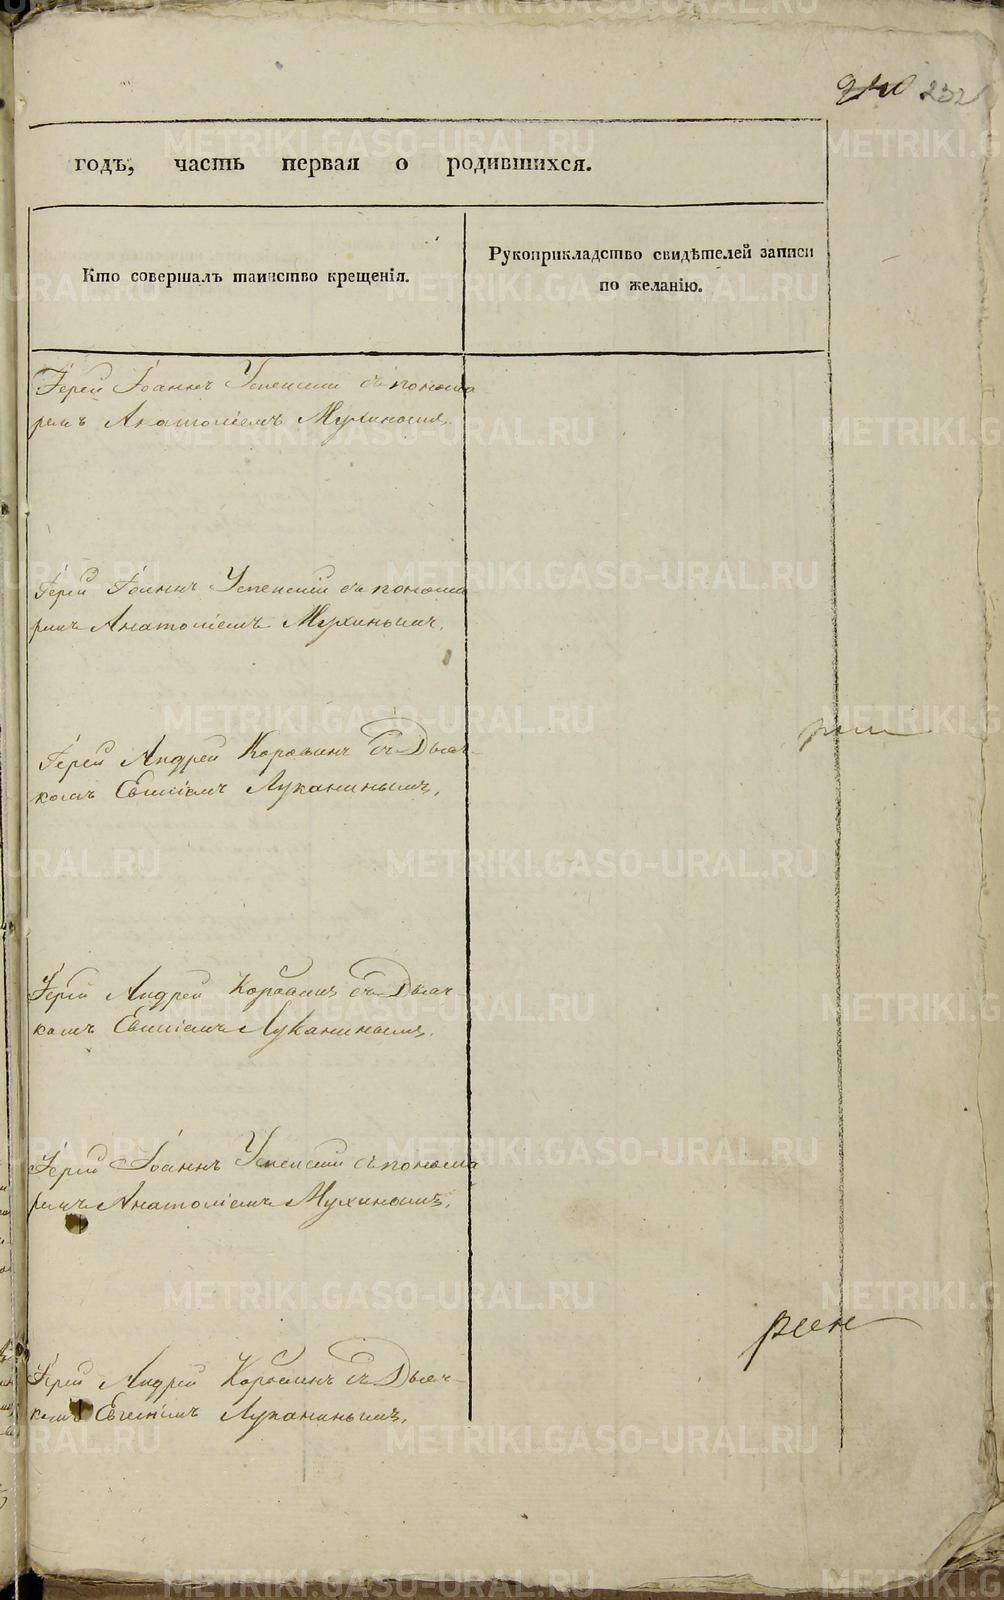 232
годъ, часть первая о родившихся.
Кто совершалъ таинство крещенія.
Рукоприкладство свидѣтелей записи
по желанію.
Іерей Іоаннъ Успенскій съ понома
ремъ Анатоліемъ Мухинымъ.
Іерей Іоаннъ Успенскій съ понома
ремъ Анатоліемъ Мухинымъ.
Іерей Андрей Коровинъ съ Дьяч-
комъ Евгеніемъ Луканинымъ.
Іерей Андрей Коровинъ съ Дьяч-
комъ Евгеніемъ Луканинымъ.
Іерей Іоаннъ Успенскій съ понома
ремъ Анатоліемъ Мухинымъ.
Іерей Андрей Коровинъ съ Дьяч-
комъ Евгеніемъ Луканинымъ.
METRIKI.GASO-URAL.RU